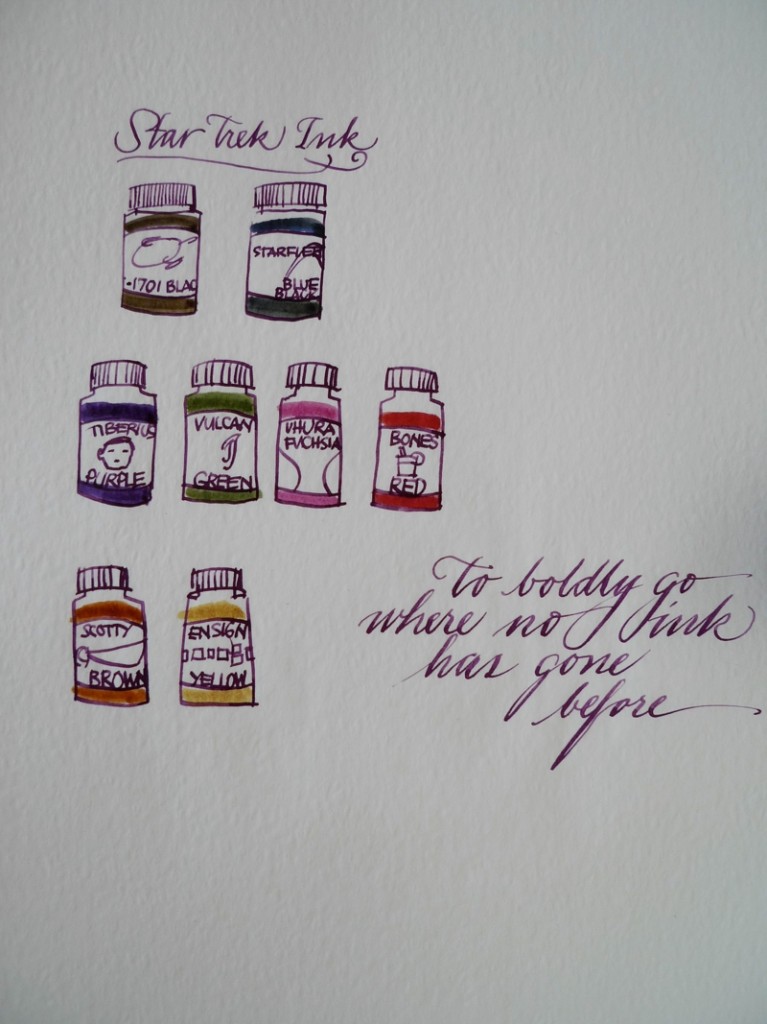 Star Trek Ink
-1701 BLAC
STARFLEE
BLUE
BLACK
TIBERIUS
PURPLE
VULCAN
GREEN
UHURA
FUCHSIA
BONES
RED
SCOTTY
BROWN
ENSIGN
YELLOW
To boldly go
where no ink
has gone
before